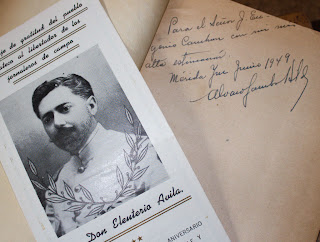 de gratitud del pueblo
al libertador de los
jornaleros de campo
Don Eleuterio Avila.
ANIVERSARIO
Y
Para el Señor J.
con mi más
alta estimación
Mérida Yuc Junio 1949
Alvaro